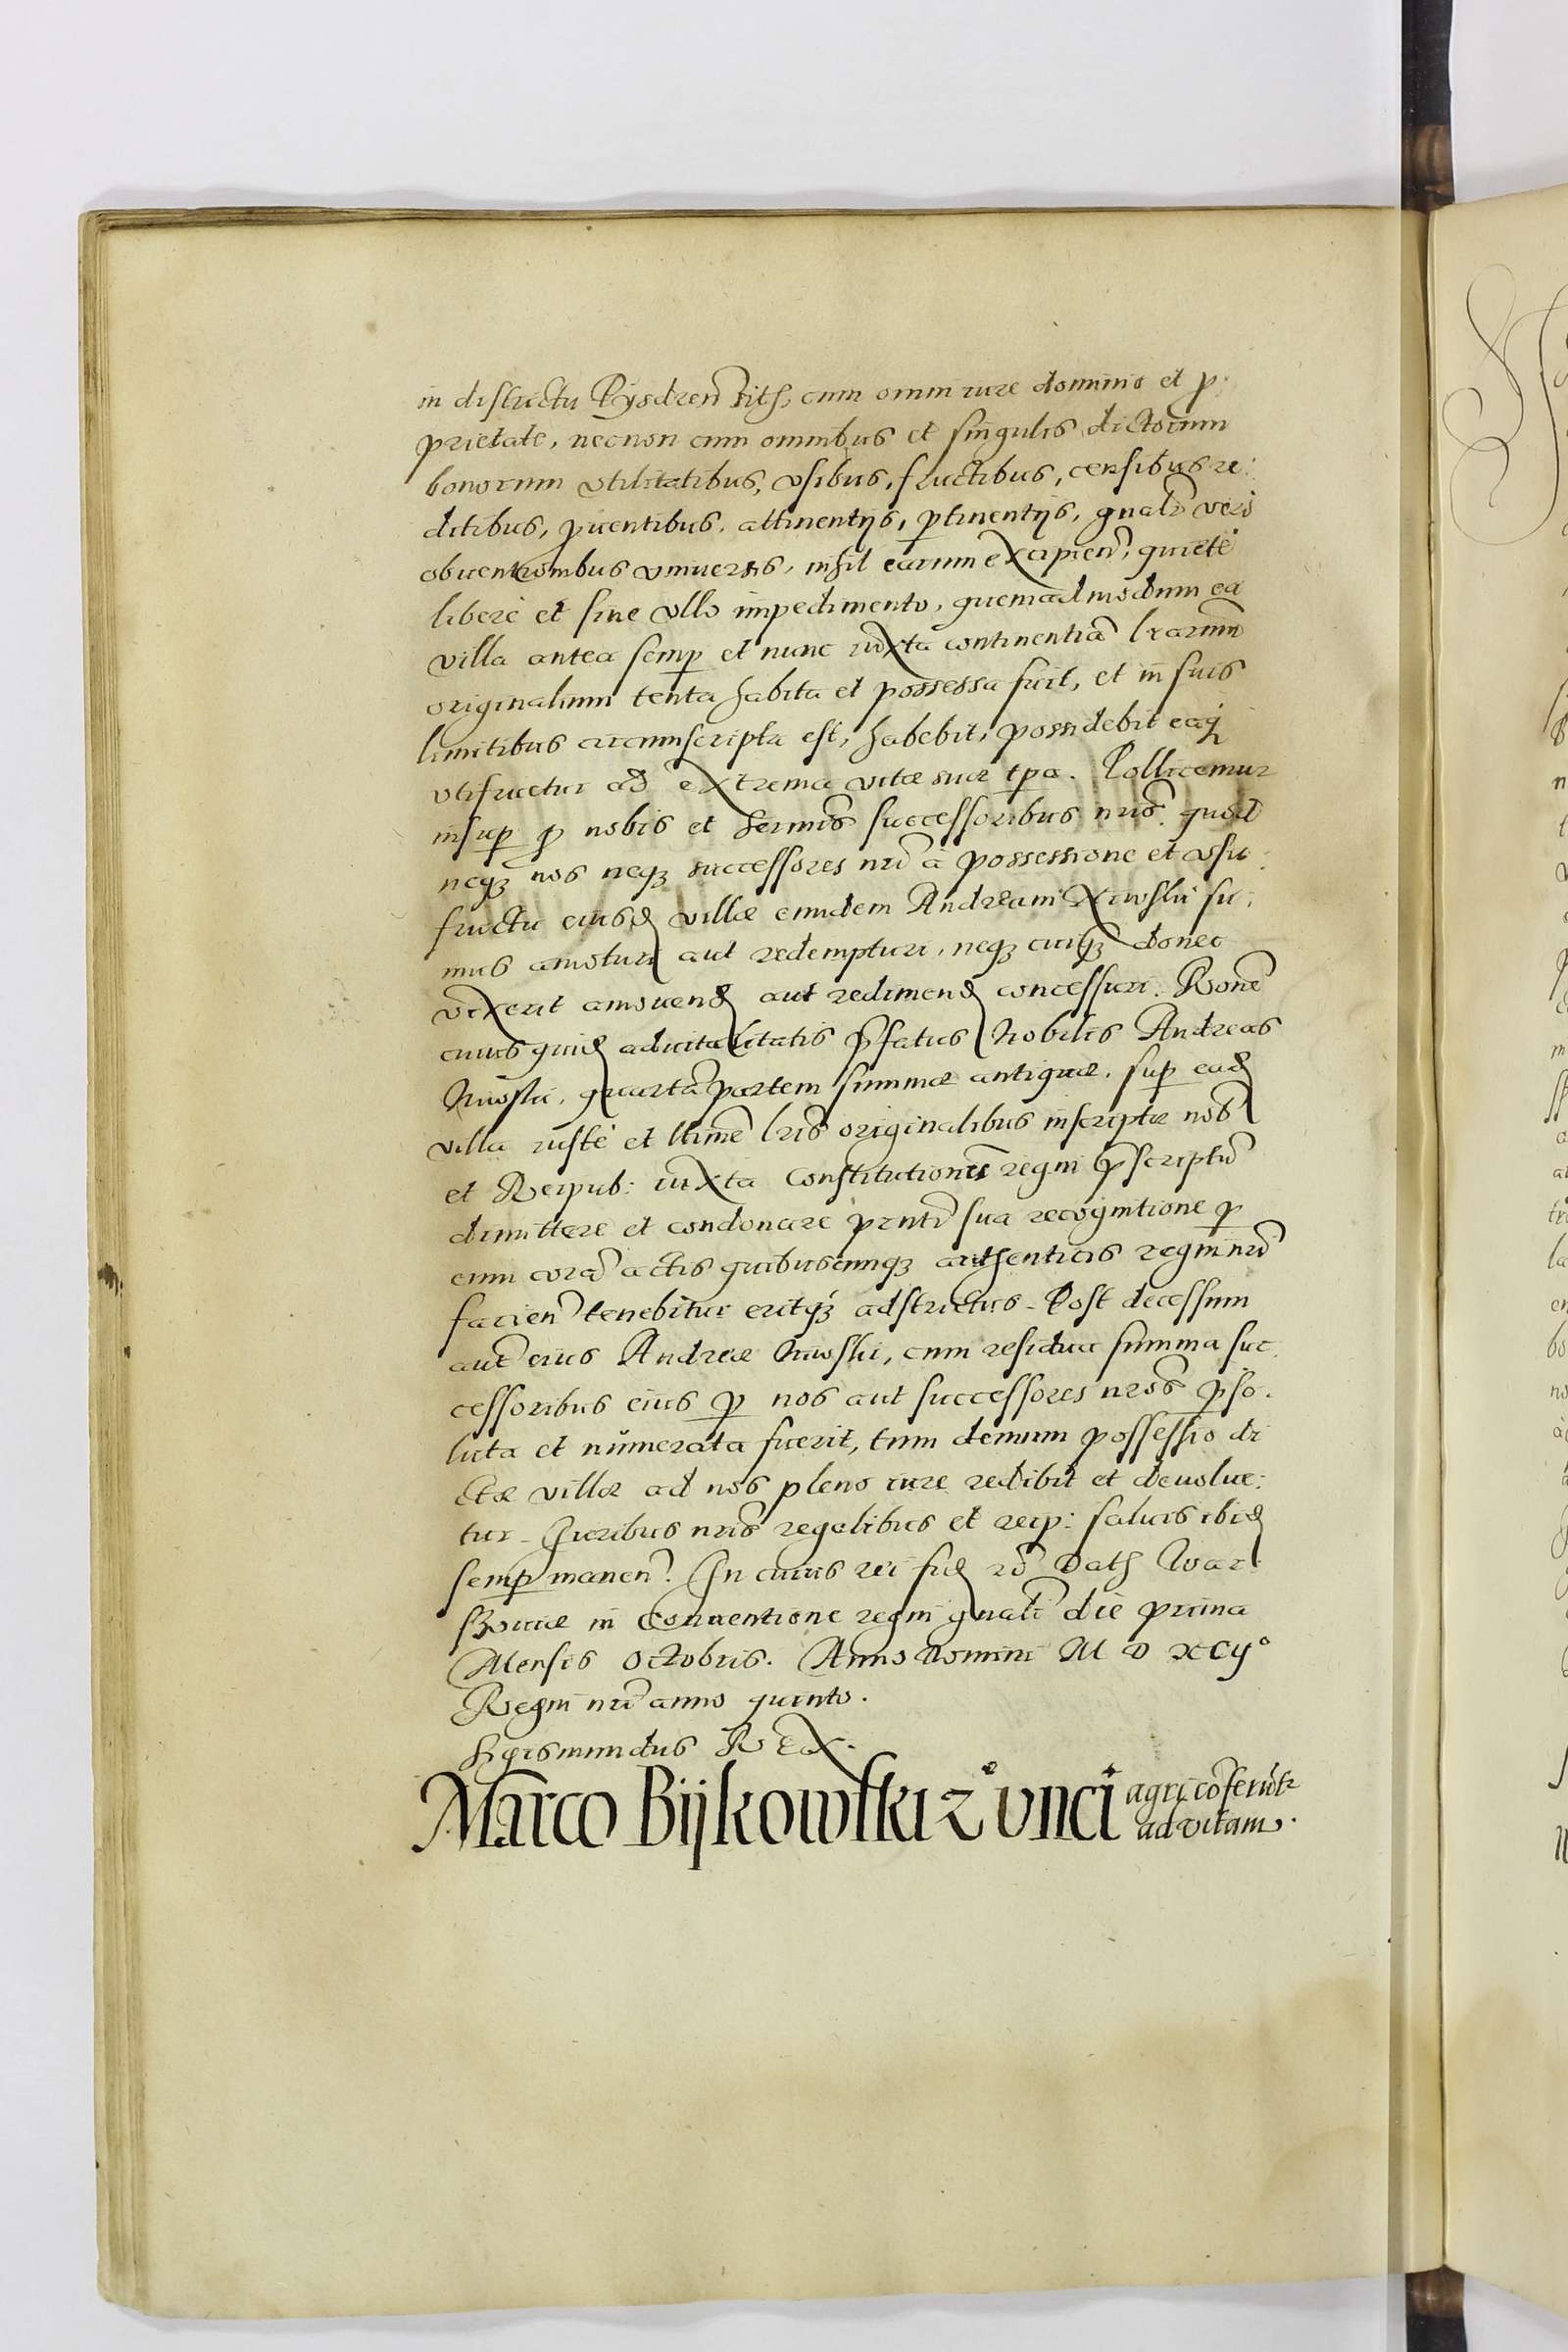 in districtu Pÿsdren sith, cum omni iure dominio et p:
prietate, necnon cum omnibus et singulis dictorum
bonorum vtilitatibus, vsibus, fructibus, censibus re:
ditibus, puentibus, attinentijs, ptinentijs, gnalr vero
obuentionibus vniuersis, nihil earum excipien, quiete
libere et sine vllo impedimento, quemadmodum ea
villa antea semp et nunc iuxta continentia lrarum
originalium tenta habita et possessa fuit, et in suis
limitibus circumscripta est, habebit, possidebit eaq
vtifruetur ad extrema vitæ suæ tpa. Pollicemur
insup p nobis et sermis successoribus nris. quod
neq nos neq successores nri à possessione et vsu
fructu eiusd villæ eundem Andream su:
mus amoturi aut redempturi, neq cuiq donec
vixerit amouend aut redimend concessuri. Rone
cuius quid aduitalitatis pfatus Nobilis Andreas
quarta partem summæ antiquæ, sup ead
villa iuste et ltime lris originalibus inscriptæ nob
et Reipub: iuxta Constitutiones regni pscriptu
dimittere et condonare pnti sua recognitione p
eum cora actis quibuscunq authenticis regni nri
facien tenebitur eritq adstrictus. Post decessum
aut eius Andreæ cum residua summa suc
cessoribus eius p nos aut successores nros pso.
luta et numerata fuerit, tum demum possessio di
ctæ villæ ad nos pleno iure redibit et deuolue:
tur. Iuribus nris regalibus et reip: saluis ibid
semp manen. In cuius rei fid Dath War
szouiæ in Conuentione regni gnali die prima
Mensis Octobris. Anno Domini M D XCij°
Regni nri anno quinto.
Sigismundus REX.
Marco Bijkowski 2 vnci agri coferutr
ad vitam.